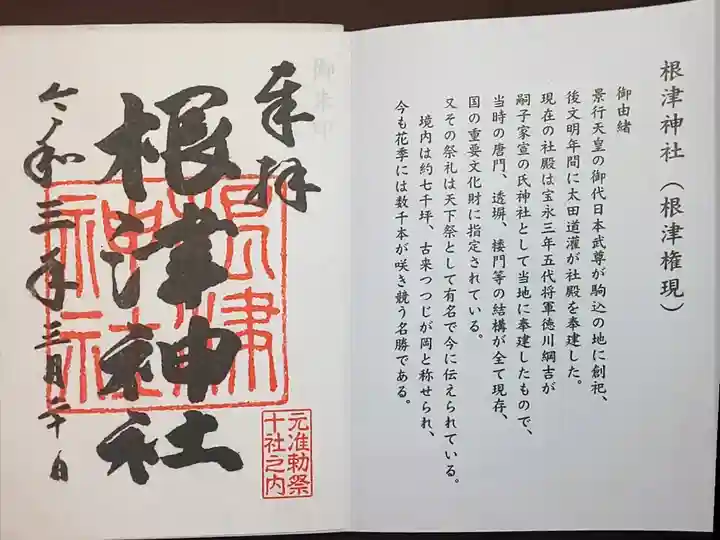 根津神社（根津権現）
御由緒
景行天皇の御代日本武尊が駒込の地に創祀、
後文明年間に太田道灌が社殿を奉建した。
現在の社殿は宝永三年五代将軍徳川綱吉が
嗣子家宣の氏神社として当地に奉建したもので、
当時の唐門、透塀、楼門等の結構が全て現存、
国の重要文化財に指定されている。
又その祭礼は天下祭として有名で今に伝えられている。
境内は約七千坪、古来つつじが岡と称せられ、
今も花季には数千本が咲き競う名勝である。
奉拝
御朱印
根津神社
根津
神社
元准勅祭
十社之内
令和三年三月